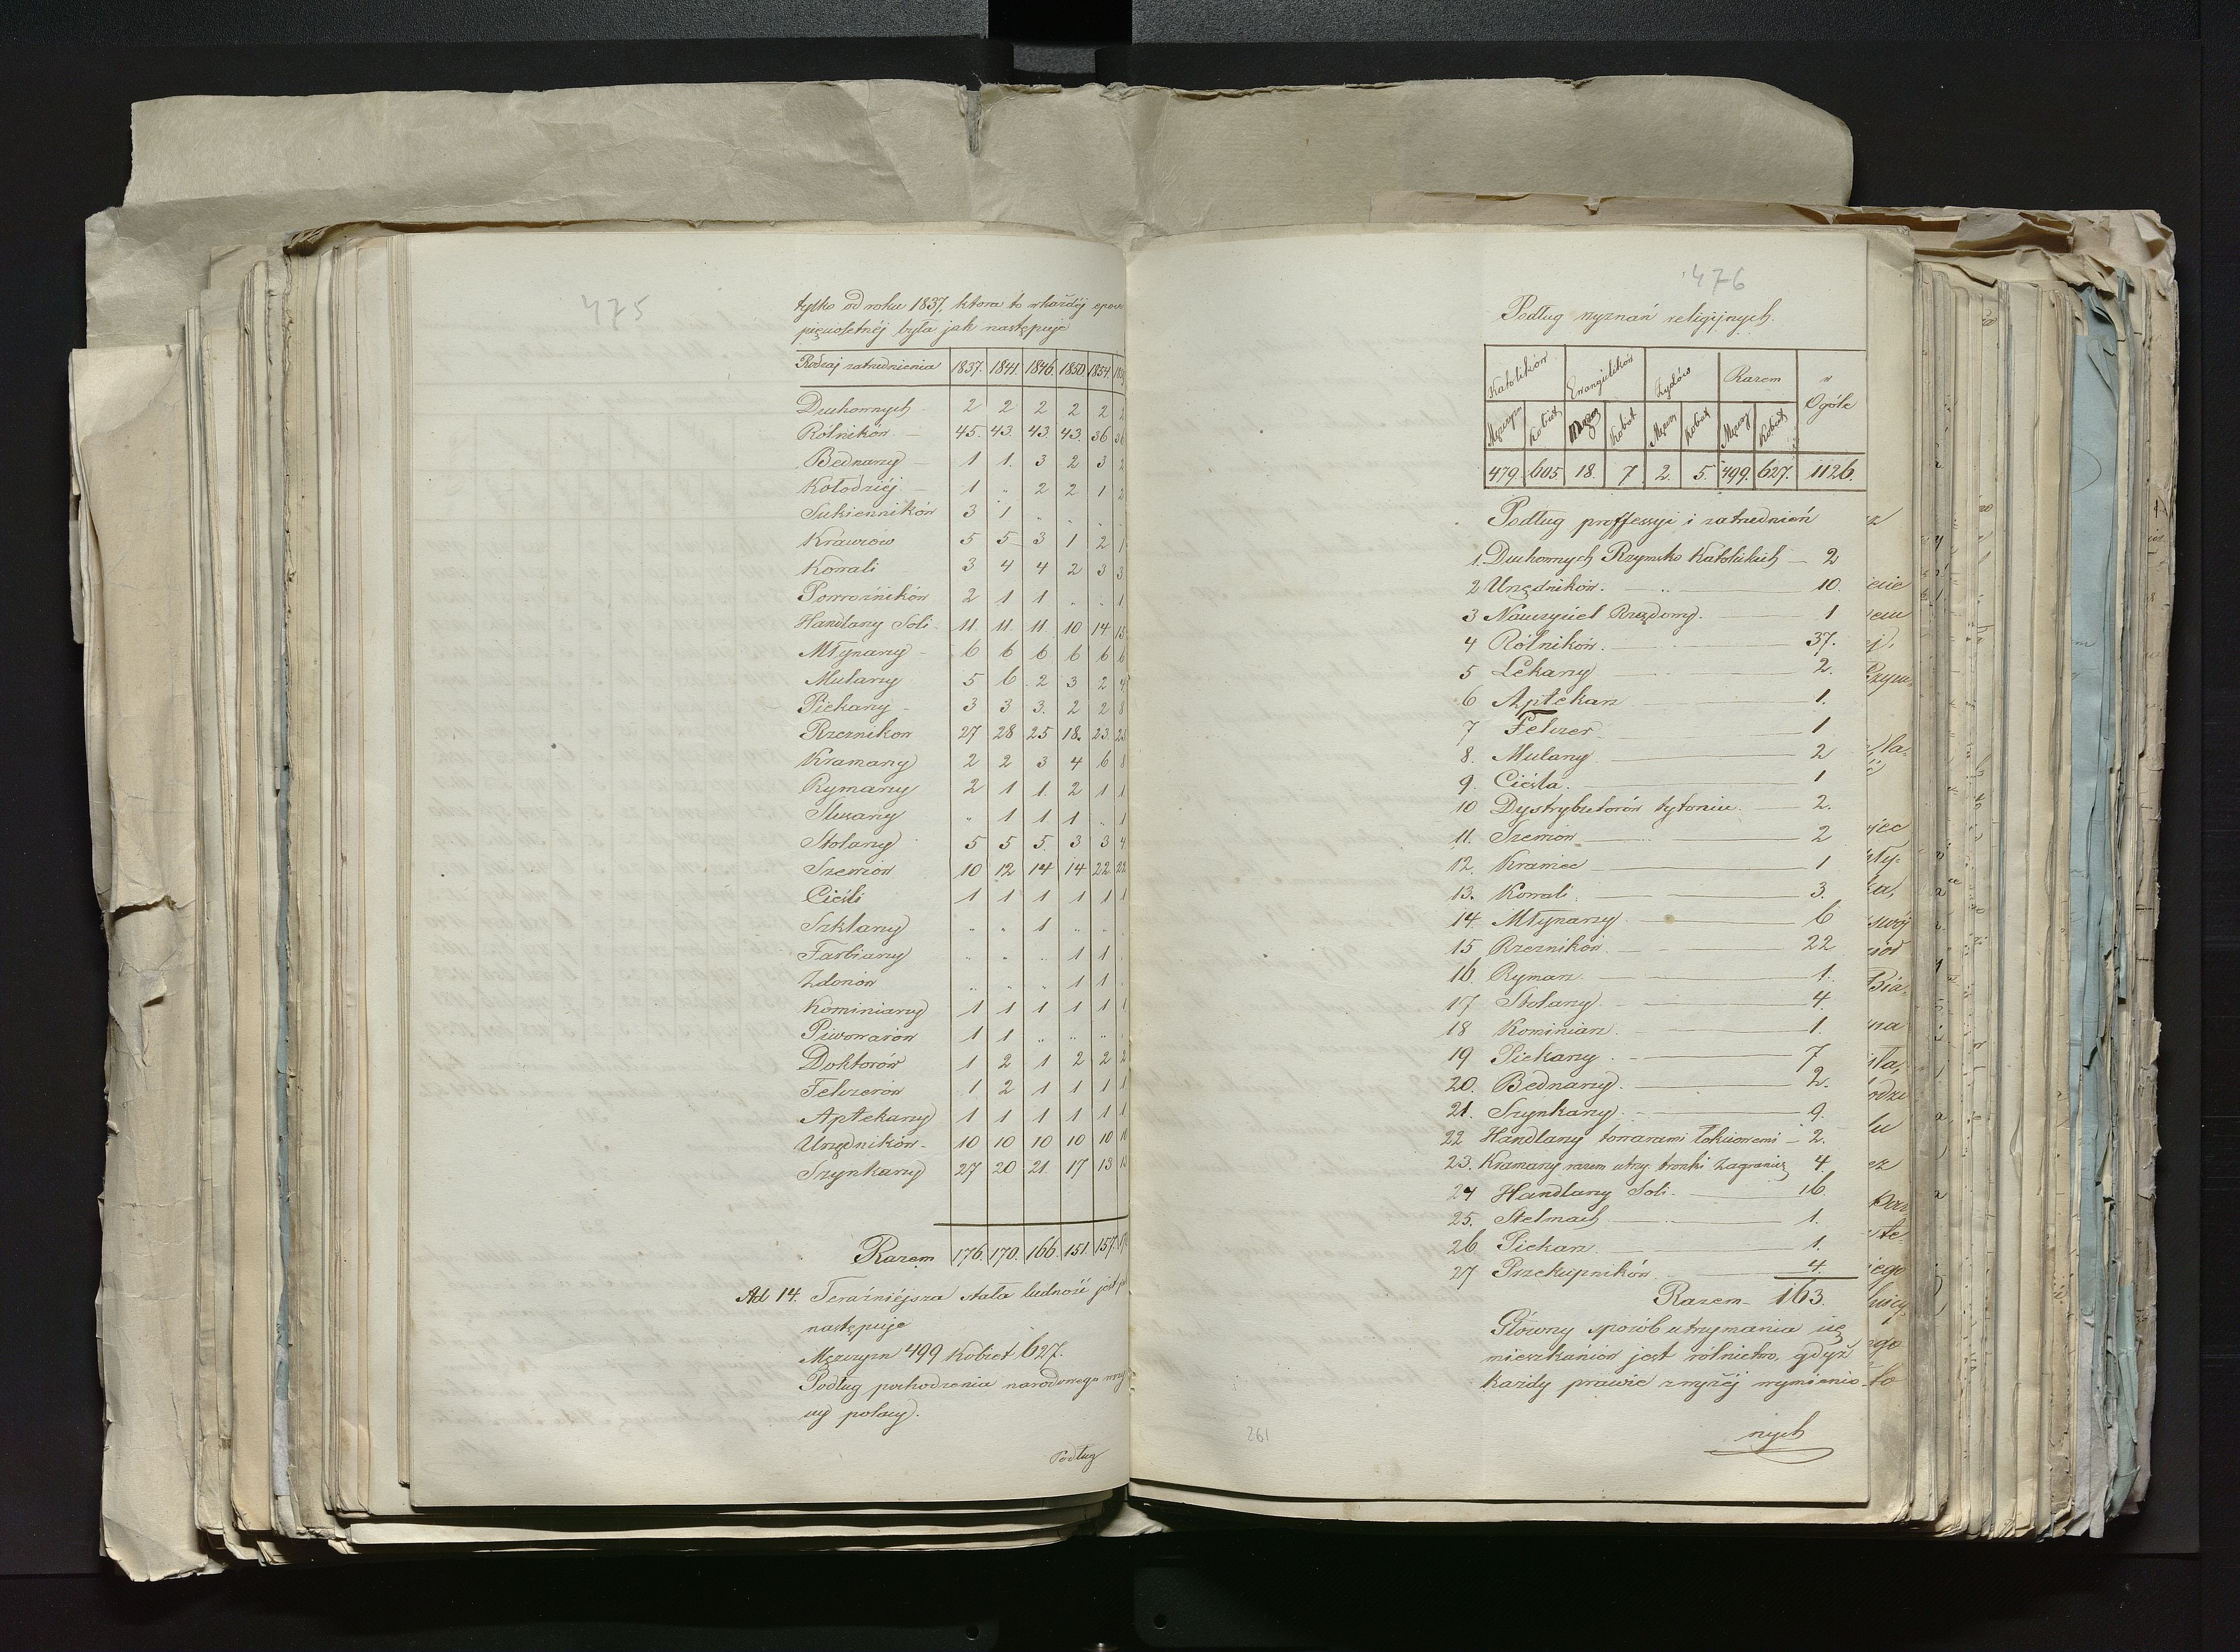 475
tylko od roku 1837, ktora to w każdéj epoce
pięcioletnéj była jak następuje
Rodzaj zatrudnienia 1837. 1841. 1846. 1850 1854.
Duchownych 2 2 2 2 2
Rólników — 45. 43. 43. 43. 36
Bednarzy — 1 1. 3 2 3 2
Kołodziéj — 1 „ 2 2 1 2
Sukienników 3 1 „ „ „
Krawców 5 5 3 1 2 1
Kowali 3 4 4 2 3 3
Powroźników 2 1 1 „ „ 1
Handlarzy Soli 11. 11. 11. 10 14.
Młynarzy — 6 6 6 6 6 6
Mularzy 5 6 2 3 2 4
Piekarzy — 3 3 3. 2 2 8
Rzeznikow 27 28 25 18. 23.
Kramarzy 2 2 3 4 6 8
Rymarzy 2 1 1. 2 1 1
Slusarzy „ 1 1 1 „ 1
Stolarzy 5 5 5. 3 3 4
Szewców 10 12 14 14 22 22
Cieśli 1 1 1 1 1 1
Szklarzy „ „ 1 „ „
Farbiarzy „ „ „ 1 1
Zdonów „ „ „ 1 1
Kominiarzy 1 1 1 1 1 1
Piwowarów 1 1 „ „ „
Doktorów 1 2 1 2 2 2
Felczerów 1 2 1 1 1 1
Aptekarzy 1 1 1 1 1 1
Urzędników — 10 10 10 10 10 10
Szynkarzy 27 20 21. 17 13
Razem 176. 170. 166. 151. 157.
Ad 14. Teraźniéjsza stała ludność jest
następuje
Męzczyzn 499 Kobiet 627.
Podług pochodzenia narodowego
scy polacy.
Podług
476
Podług wyznań religijnych.
Katolików Ewangielików Żydów Razem w Ogóle
Męzczyzn Kobiet Męzcz Kobiet Męzcz Kobiet Męzczy Kobiet
479. 605 18. 7 2. 5. 499. 627. 1126.
Podług proffessyi i zatrudnień
1. Duchownych Rzymsko Katolickich — 2
2 Urzędników. — 10.
3 Nauczyciel Rządowy. — 1
4 Rólników. — 37.
5 Lekarzy — 2.
6 Aptekarz — 1.
7 Felczer — 1
8. Mularzy — 2
9. Cieśla. — 1
10 Dystrybutorów tytoniu. — 2.
11. Szewców — 2
12. Krawiec — 1
13. Kowali. — 3.
14. Młynarzy — 6
15 Rzeznikow. — 22
16. Rymarz. — 1.
17 Stolarzy. — 4.
18 Kominiarz. — 1.
19 Piekarzy. — 7
20. Bednarzy. — 2.
21. Szynkarzy. — 9.
22 Handlarzy towarami łokciowemi — 2.
23. Kramarzy razem utrzy. trunki Zagranicz 4.
24 Handlarzy Soli. — 16.
25. Stelmach — 1.
26 Piekarz. — 1.
27 Przekupników. — 4.
Razem — 163.
Główny sposób utrzymania się
mieszkańców jest rólnictwo, gdyż
każdy prawie z wyżéj wymienio-
nych
261